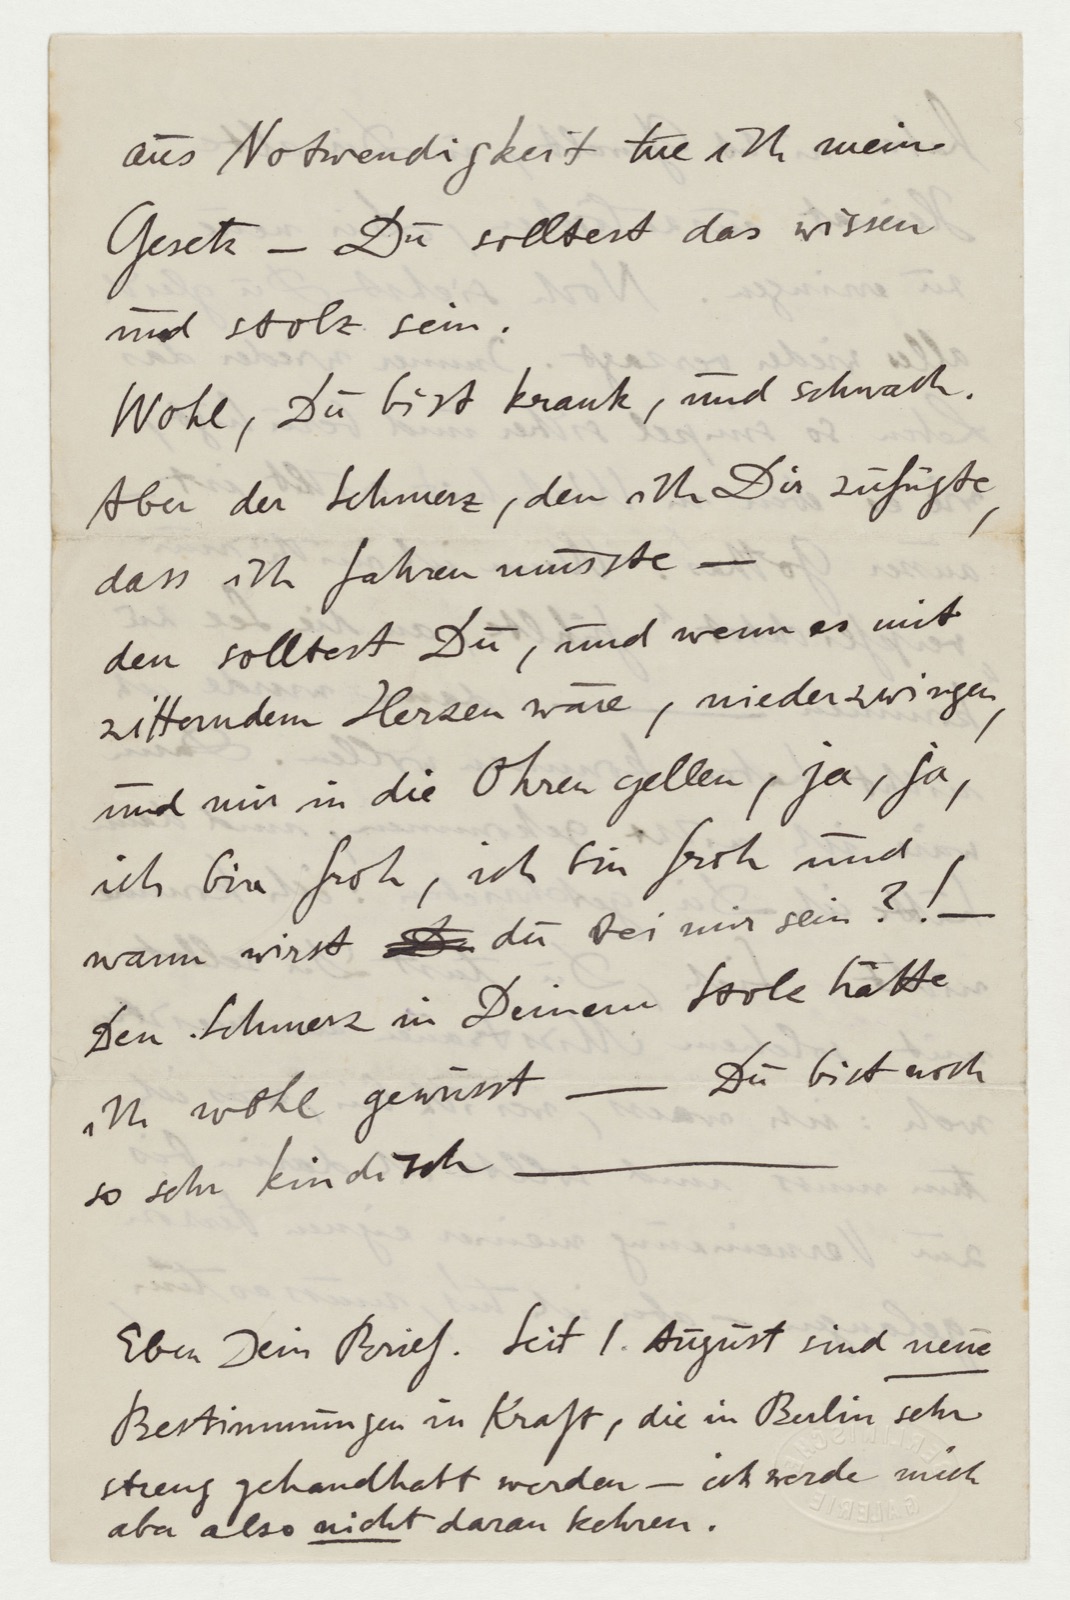 aus Notwendigkeit tue ich mein
Gesetz — Du solltest das wissen
und stolz sein.
Wohl, Du bist krank, und schwach.
Aber der Schmerz, den ich Dir zufügte,
dass ich fahren musste —
den solltest Du, und wenn es mit
zitterndem Herzen wäre, niederzwingen,
und mir in die Ohren gellen, ja, ja,
ich bin froh, ich bin froh und,
wann wirst du bei mir sein?!—
Den Schmerz in Deinem Stolz hätte
ich wohl gewusst — Du bist noch
so sehr kindisch —
Eben Dein Brief. Seit 1. August sind neue
Bestimmungen in Kraft, die in Berlin sehr
streng gehandhabt werden — ich werde mich
aber also nicht daran kehren.